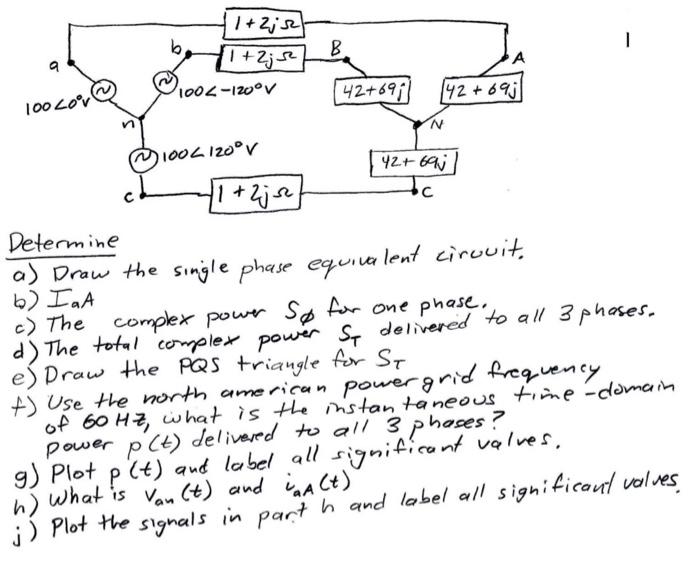 1+2jΩ
1
b
1+2jΩ
B
A
a
100∠0°V
100∠-120°V
42+69j
42+69j
n
N
100∠120°V
42+69j
c
1+2jΩ
C
Determine
a) Draw the single phase equivalent circuit.
b) IaA
c) The complex power Sø for one phase.
d) The total complex power ST delivered to all 3 phases.
e) Draw the PQS triangle for ST
f) Use the north american power grid frequency
of 60 HZ, what is the instantaneous time-domain
power p(t) delivered to all 3 phases?
g) Plot p(t) and label all significant values.
h) What is Van(t) and iaA(t)
j) Plot the signals in part h and label all significant values.